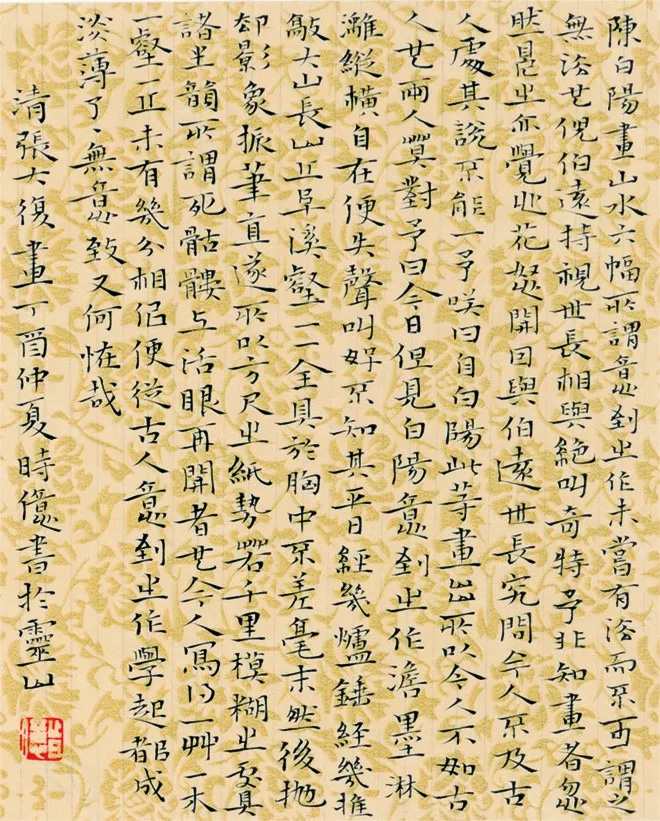 陳白陽畫山水六幅所謂意到之作未嘗有法而不可謂之
無法也倪伯遠持視世長相與絕叫奇特予非知畫者忽
然見之亦覺心花怒開因與伯遠世長究問今人不及古
人處其說不能一予咲曰自白陽此等畫出所以今人不如古
人也兩人異對予曰今日但見白陽意到之作澹墨淋
漓縱橫自在便失聲叫好不知其平日經幾爐錘經幾推
敲大山長山丘阜溪壑一一全具於胸中不差毫末然後拋
却影象振筆直遂所以方尺之紙勢若千里模糊之處具
諸生韻所謂死骷髏上活眼再開者也今人寫得一艸一木
一壑一丘未有幾分相侣便從古人意到之作學起都成
淡薄了々無意致又何怪哉
清張大復畫丁酉仲夏時億書於靈山